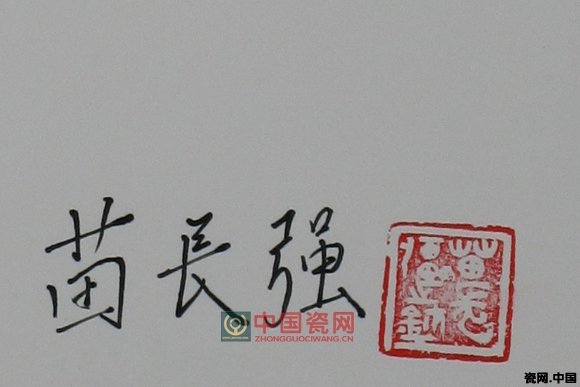 苗長强
中国瓷网
ZHONGGUOCIWANG.CN
瓷网.中国